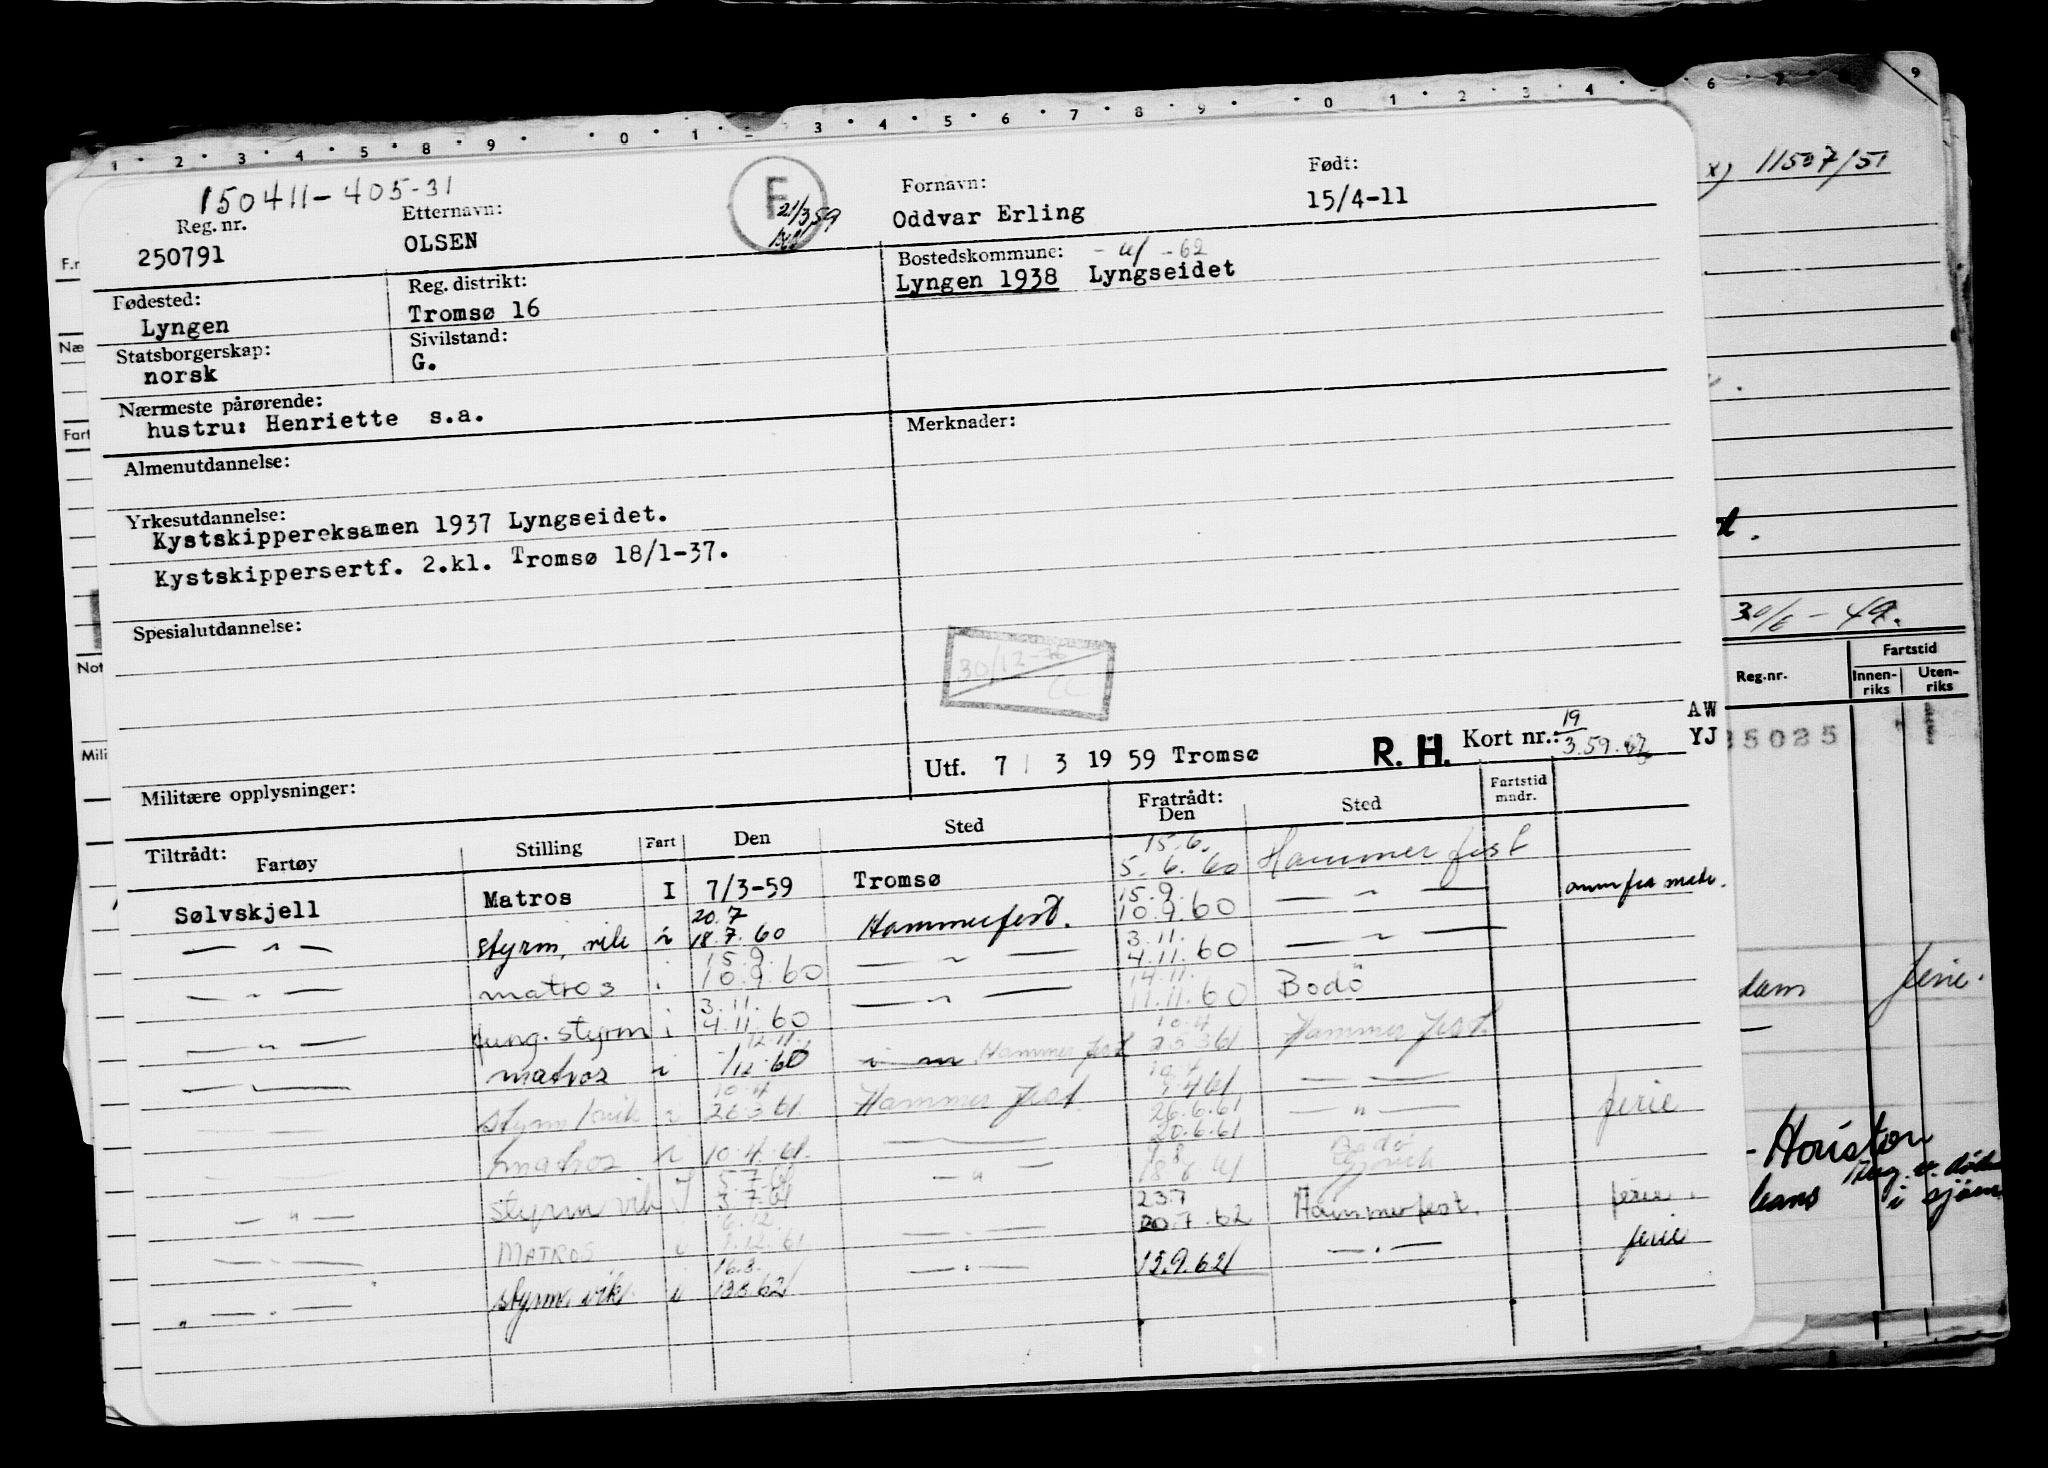 1 2 3 4 5 8 9 0 1 3 4 5 6 7 8 9 0 1 2 3 4 6 9
150411-405-31
Reg. nr. Etternavn: F 21/3 59 Fornavn: Født:
250791 OLSEN Oddvar Erling 15/4-11
Fødested: Reg. distrikt: Bostedskommune: -62
Lyngen Tromsø 16 Lyngen 1938 Lyngseidet
Statsborgerskap: Sivilstand:
norsk G.
Nærmeste pårørende:
hustru: Henriette s.a. Merknader:
Almenutdannelse:
Yrkesutdannelse:
Kystskippereksamen 1937 Lyngseidet.
Kystskippersertf. 2.kl. Tromsø 18/1-37.
Spesialutdannelse:
30/12-76
CC
AW
Utf. 7 / 3 19 59 Tromsø R. H. Kort nr.: 19/3.59.62 YJ
Militære opplysninger:
Tiltrådt: Fratrådt: Fartstid mndr.
Fartøy Stilling Fart Den Sted Den Sted
Sølvskjell Matros I 7/3-59 Tromsø 15.6. 5.6.60 Hammerfest
— " — styrm. vik i 20.7 18.7.60 Hammerfest. 15.9. 10.9.60 — " —
— " — matros i 15.9. 10.9.60 — " — 3.11. 4.11.60 — " —
— " — fung. styrm i 3.11. 4.11.60 — " — 14.11. 11.11.60 Bodö
— — matros i 60 i m. Hammerfest 10.4 61 Hammerfest.
styrm vik i 10.4 26.3 61. Hammerfest. 1.4 61 — —
matros i 10.4.61. — — 26.6.61 20.6.61 — " — ferie
— " — styrm vik I 5.7.61 3.7.61 — " — Bodö
— . — MATROS i 6.12. 61 — . — 23.7 20.7.62 Hammerfest. ferie.
" — . — styrm. vik. i 16.3. 62 — . — 15.9.62 — . — ferie
x) 11507/51
30/6 - 49.
Reg.nr. Fartstid
Innen-riks Uten-riks
35025
dam ferie.
- Houston
leans i sjøm
F.r
Næ
Fart
Not
Mili